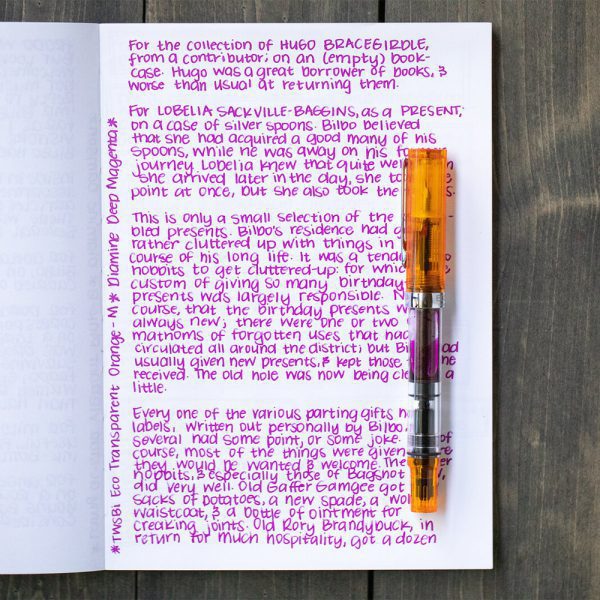 For the collection of HUGO BRACEGIRDLE,
from a contributor; on an (empty) book-
case. Hugo was a great borrower of books, &
worse than usual at returning them.
For LOBELIA SACKVILLE-BAGGINS, as a PRESENT;
on a case of silver spoons. Bilbo believed
that she had acquired a good many of his
spoons, while he was away on his
journey. Lobelia knew that quite
she arrived later in the day, she
point at once, but she also took the
This is only a small selection of the
bled presents. Bilbo's residence had
rather cluttered up with things in
course of his long life. It was a
hobbits to get cluttered-up: for which
custom of giving so many birthday
presents was largely responsible.
course, that the birthday presents
always new; there were one or two
mathoms of forgotten uses that had
circulated all around the district; but
usually given new presents, & kept those
received. The old hole was now being a
little.
Every one of the various parting gifts
labels, written out personally by Bilbo,
several had some point, or some joke. of
course, most of the things were given
they would be wanted & welcome. The
hobbits, & especially those of Bagshot
did very well. Old Gaffer Gamgee got
sacks of potatoes, a new spade, a
waistcoat, & a bottle of ointment for
creaking joints. Old Rory Brandybuck, in
return for much hospitality, got a dozen
*TWSBI Eco Transparent Orange - M* Diamine Deep Magenta*